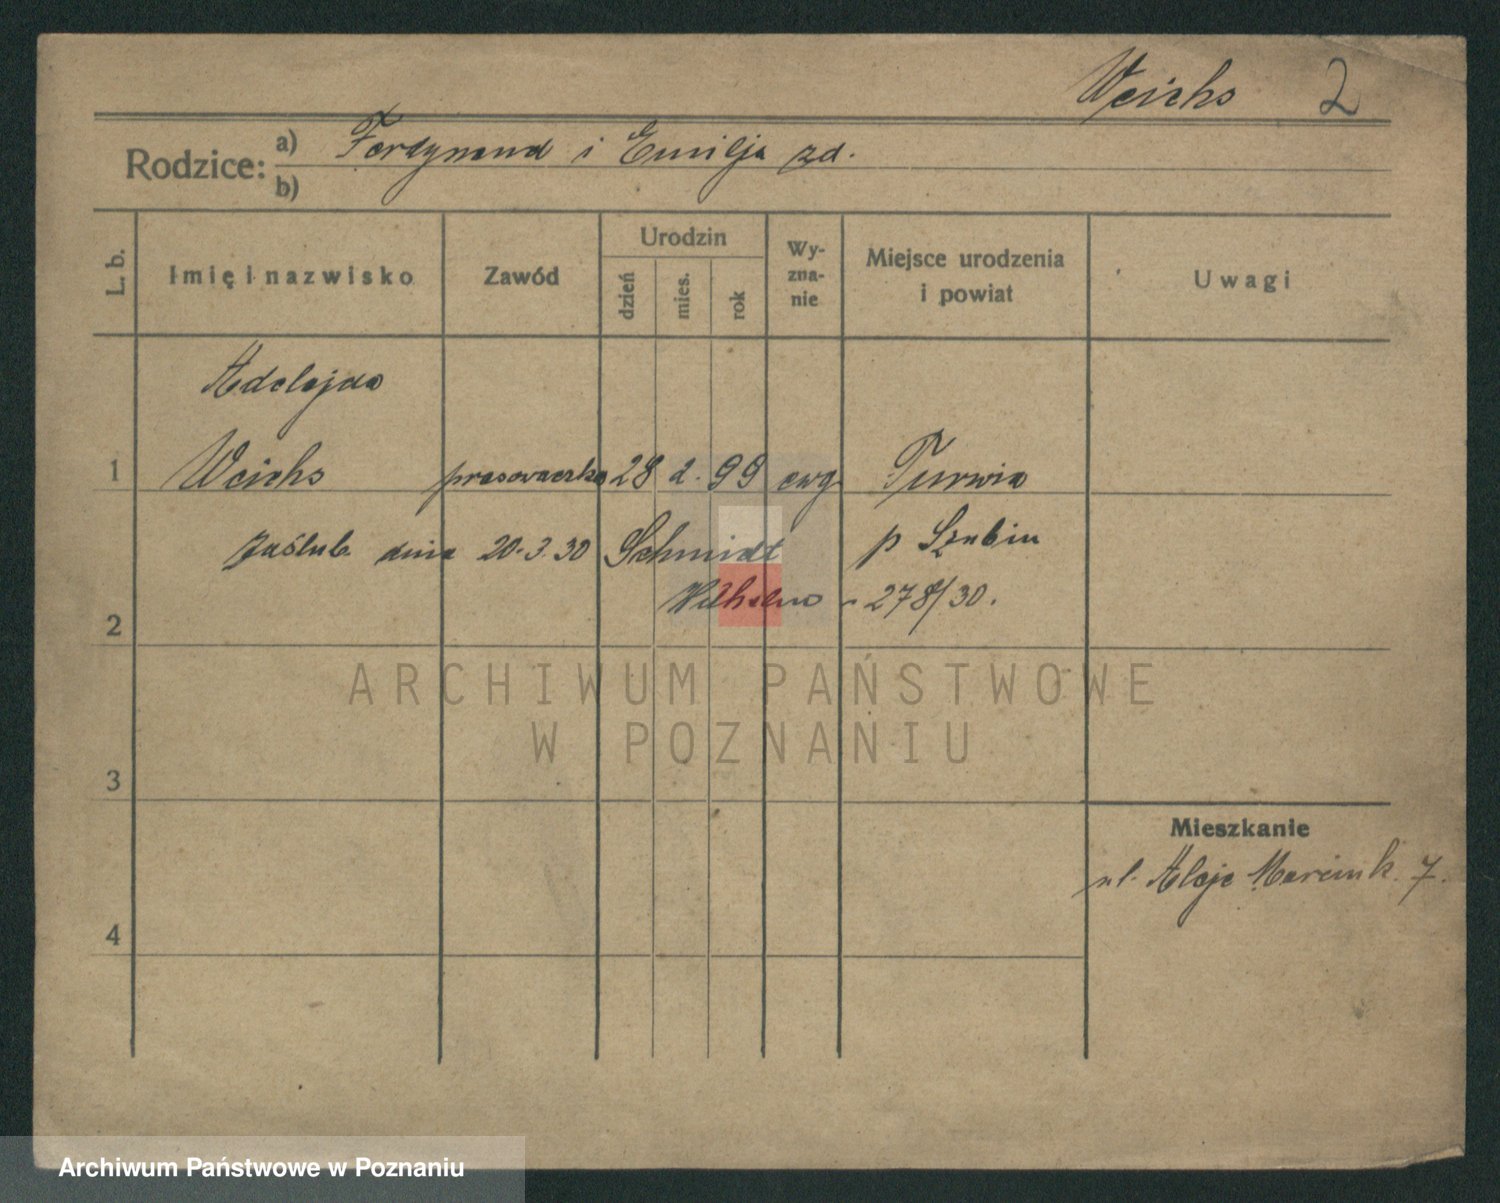 Weichs 2
Rodzice: a) Ferdynand i Emilja zd.
b)
L. b. Imię i nazwisko Zawód Urodzin dzień mies. rok Wyzna-nie Miejsce urodzenia i powiat Uwagi
Adelajda
1 Weichs prasowaczka 28 2. 99 ewg Turwia
zaślub. dnia 20.3.30 Schmidt p Szubin
2 Wilhelm - 278/30.
ARCHIWUM PAŃSTWOWE
W POZNANIU
3
Mieszkanie
ul. Aleje Marcink. 7.
4
Archiwum Państwowe w Poznaniu